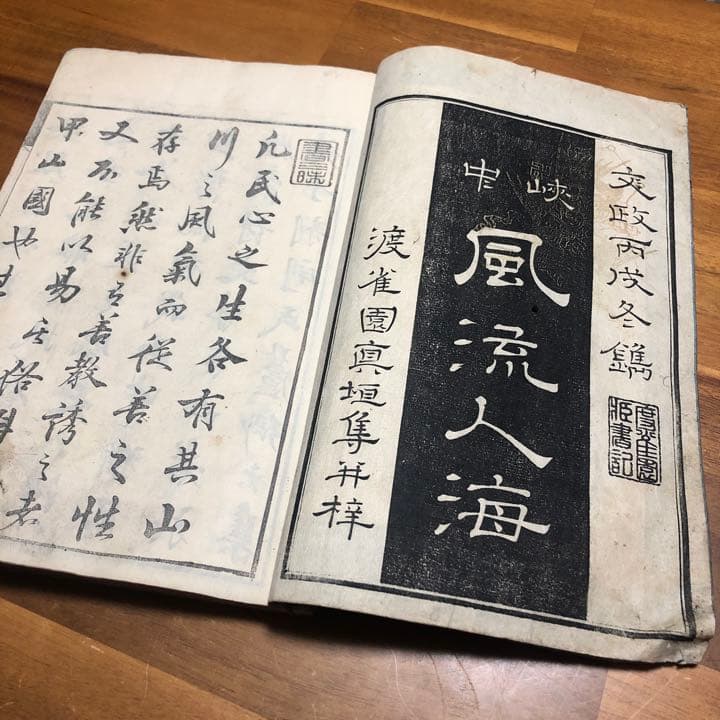 文政丙戌冬鐫
峽中
風流人海
渡雀園真垣集并梓
書三昧
凡民心之生各有其山
川之風氣而從善之性
存焉然非有善教誘之者
又不能以易其俗
甲山國也其